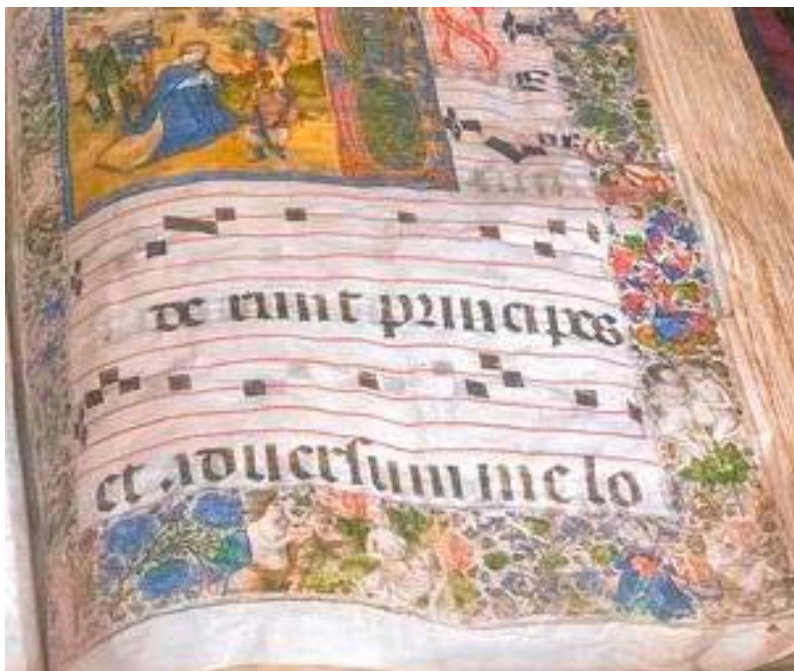 de runt principes
et aduersum me lo